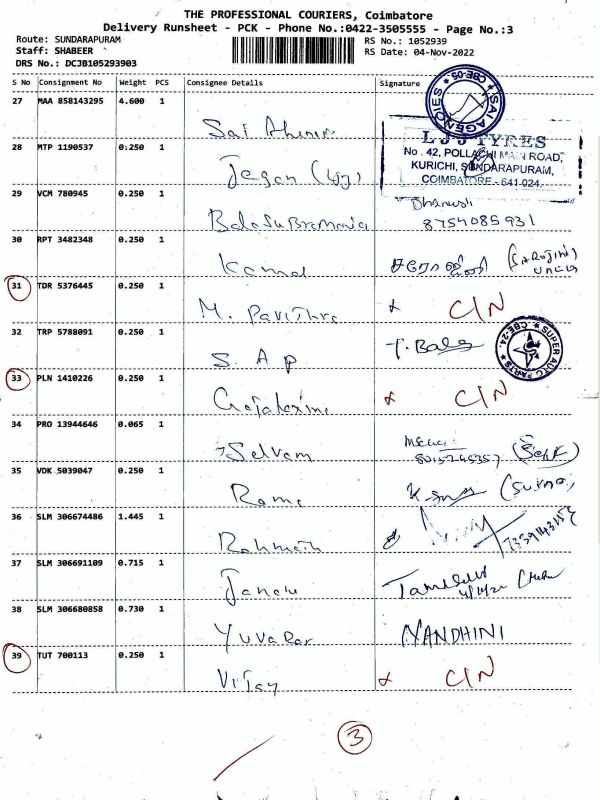 THE PROFESSIONAL COURIERS, Coimbatore
Delivery Runsheet - PCK - Phone No.:0422-3505555 - Page No.:3
Route: SUNDARAPURAM RS No.: 1052939
Staff: SHABEER RS Date: 04-Nov-2022
DRS No.: DCJB105293903
S No Consignment No Weight PCS Consignee Details Signature
27 MAA 858143295 4.600 1 Sai
SAI AGENCIES CBE-05
28 MTP 1190537 0.250 1 Jegan
L J J TYRES
No. 42, POLLACHI MAIN ROAD,
KURICHI, SUNDARAPURAM,
COIMBATORE - 641 024.
29 VCM 780945 0.250 1 BalaSuBramania
8754085931
30 RPT 3482348 0.250 1 Kamal சரோஜினி
31 TDR 5376445 0.250 1 M. Pavithra x C/N
32 TRP 5788091 0.250 1 S. A P T. Bala
SUPER AUTO PARTS CBE-24
33 PLN 1410226 0.250 1 Gajalaxmi x C/N
34 PRO 13944646 0.065 1 Selvam
35 VDK 5039047 0.250 1 Rama
36 SLM 306674486 1.445 1
37 SLM 306691109 0.715 1
38 SLM 306680858 0.730 1 NANDHINI
39 TUT 700113 0.250 1 Vijay x C/N
3